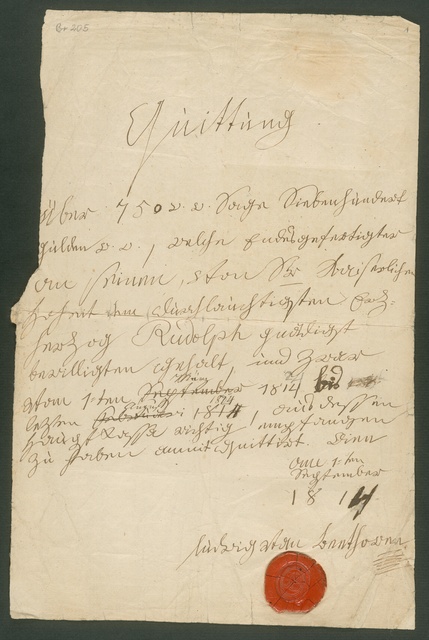 Br 205
Quittung
über 750 v. v. Sage Siebenhundert
gulden v. v., welche Endesgefertigter
an seinen, von Sr Kaiserlichen
Hoheit dem durchlauchtigsten Erz=
herzog Rudolph gnädigst
bewilligten Gehalt, und zwar
vom 1=ten März 1814 bis
lezten August 1814, aus dessen
Haupt Kassa richtig empfangen
zu haben anmit quittirt. Vien
am 1=ten
September
1814
ludwig van Beethoven